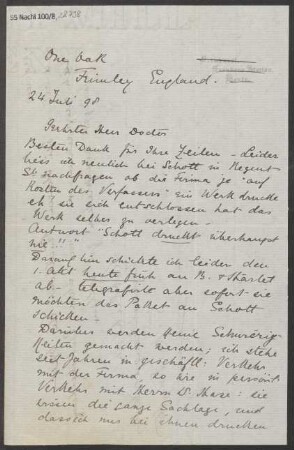 55 Nachl 100/B,
One Oak
Frimley England.
24 Juli 98
Geehrter Herr Doctor
Besten Dank für Ihre Zeilen – Leider
liess ich neulich bei Schott in Regent
St. nachfragen ob die Firma je "auf
Kosten des Verfassers" ein Werk drucke
eh sie sich entschlossen hat das
Werk selber zu verlegen –
Antwort "Schott druckt überhaupt
nie!!"
Darauf hin schickte ich leider den
1. Akt heute früh an B. & Härtel
ab – telegrafirte aber sofort sie
möchten das Paket an Schott
schicken –
Darüber werden keine Schwierig-
keiten gemacht werden; ich stehe
seit Jahren in geschäftl: Verkehr
mit der Firma, so wie in persönl:
Verkehr mit Herrn Dr Hase: sie
wissen die ganze Sachlage, und
dass ich nur bei ihnen drucken